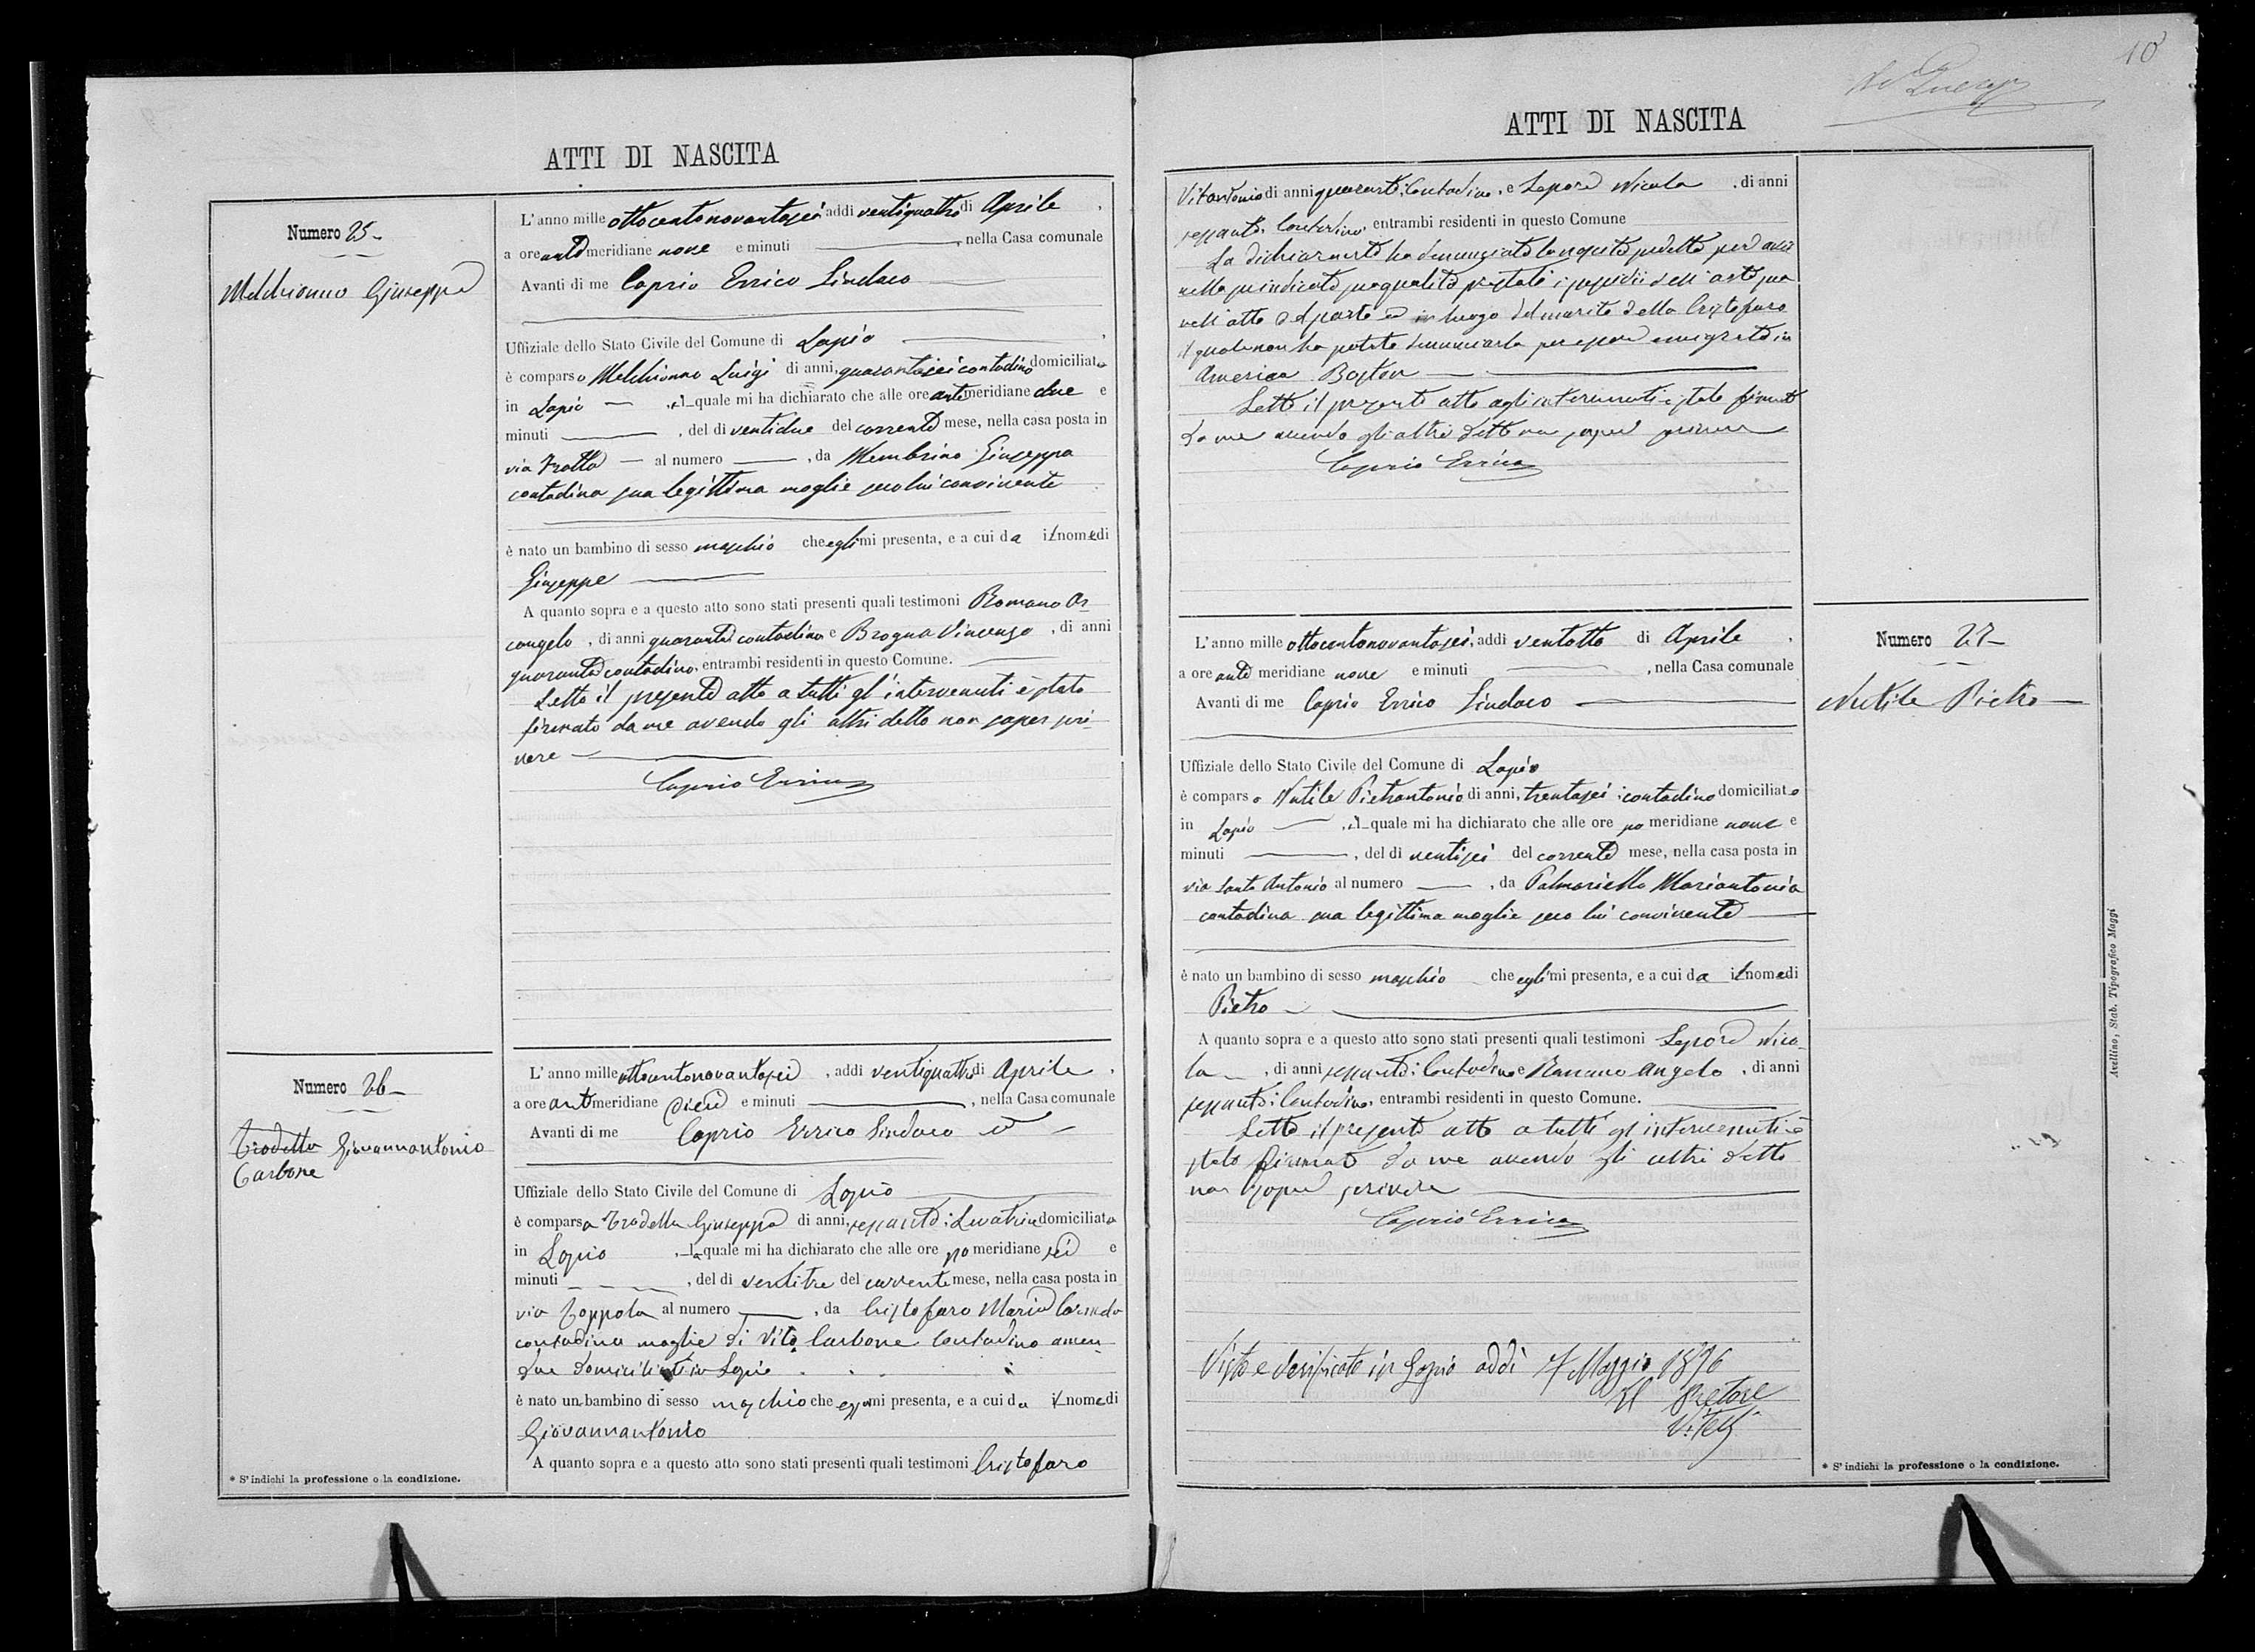 ATTI DI NASCITA
Numero 25
Melchionno Giuseppe
L'anno mille ottocentonovantasei, addi ventiquattro di Aprile,
a ore ante meridiane nove e minuti, nella Casa comunale
Avanti di me Caprio Errico Sindaco
Uffiziale dello Stato Civile del Comune di Lapio,
è comparso Melchionno Luigi di anni, quarantasei contadino domiciliato
in Lapio, il quale mi ha dichiarato che alle ore ante meridiane due e
minuti, del dì ventidue del corrente mese, nella casa posta in
via Fratta al numero, da Membrino Giuseppa
contadina sua legittima moglie seco lui convivente
è nato un bambino di sesso maschio che egli mi presenta, e a cui da il nome di
Giuseppe
A quanto sopra e a questo atto sono stati presenti quali testimoni Romano Ar
cangelo, di anni quaranta contadino e Brogna Vincenzo, di anni
quaranta contadino, entrambi residenti in questo Comune.
Letto il presente atto a tutti gl'intervenuti è stato
firmato da me avendo gli altri detto non saper scri
vere
Caprio Errico
Numero 26
Trodella Giovannantonio
Carbone
L'anno mille ottocentonovantasei, addi ventiquattro di Aprile,
a ore ante meridiane dieci e minuti, nella Casa comunale
Avanti di me Caprio Errico Sindaco
Uffiziale dello Stato Civile del Comune di Lapio
è comparsa Trodella Giuseppa di anni, sessanta; Levatrice domiciliata
in Lapio, la quale mi ha dichiarato che alle ore po meridiane sei e
minuti, del dì ventitre del corrente mese, nella casa posta in
via Toppola al numero, da Cristofaro Maria Carmela
contadina moglie di Vito Carbone Contadino amen
due domiciliati in Lapio
è nato un bambino di sesso maschio che essa mi presenta, e a cui da il nome di
Giovannantonio
A quanto sopra e a questo atto sono stati presenti quali testimoni Cristofaro
* S'indichi la professione o la condizione.
10
ATTI DI NASCITA
Vitantonio di anni quaranta, Contadino, e Lepore Nicola, di anni
sessanta, Contadino, entrambi residenti in questo Comune
La dichiarante ha denunciato la nascita predetta per aver
nella suindicata sua qualità prestati i sussidii dell'arte sua
nell'atto del parto ed in luogo del marito della Cristofaro
il quale non ha potuto denunciarla per essere emigrato in
America Boston
Letto il presente atto agli intervenuti è stato firmato
da me avendo gli altri detto non saper scrivere
Caprio Errico
Numero 27
Nutile Pietro
L'anno mille ottocentonovantasei, addi ventotto di Aprile,
a ore ante meridiane nove e minuti, nella Casa comunale
Avanti di me Caprio Errico Sindaco
Uffiziale dello Stato Civile del Comune di Lapio
è comparso Nutile Pietrantonio di anni, trentasei; contadino domiciliato
in Lapio, il quale mi ha dichiarato che alle ore po meridiane nove e
minuti, del dì ventisei del corrente mese, nella casa posta in
via Santo Antonio al numero, da Palmariello Mariantonia
contadina sua legittima moglie seco lui convivente
è nato un bambino di sesso maschio che egli mi presenta, e a cui da il nome di
Pietro
A quanto sopra e a questo atto sono stati presenti quali testimoni Lepore Nico
la, di anni sessanta; Contadino e Romano Angelo, di anni
sessanta; Contadino, entrambi residenti in questo Comune.
Letto il presente atto a tutti gl'intervenuti è
stato firmato da me avendo gli altri detto
non saper scrivere
Caprio Errico
Visto e verificato in Lapio addì 7 Maggio 1896
Il Pretore
* S'indichi la professione o la condizione.
Avellino, Stab. Tipografico Maggi